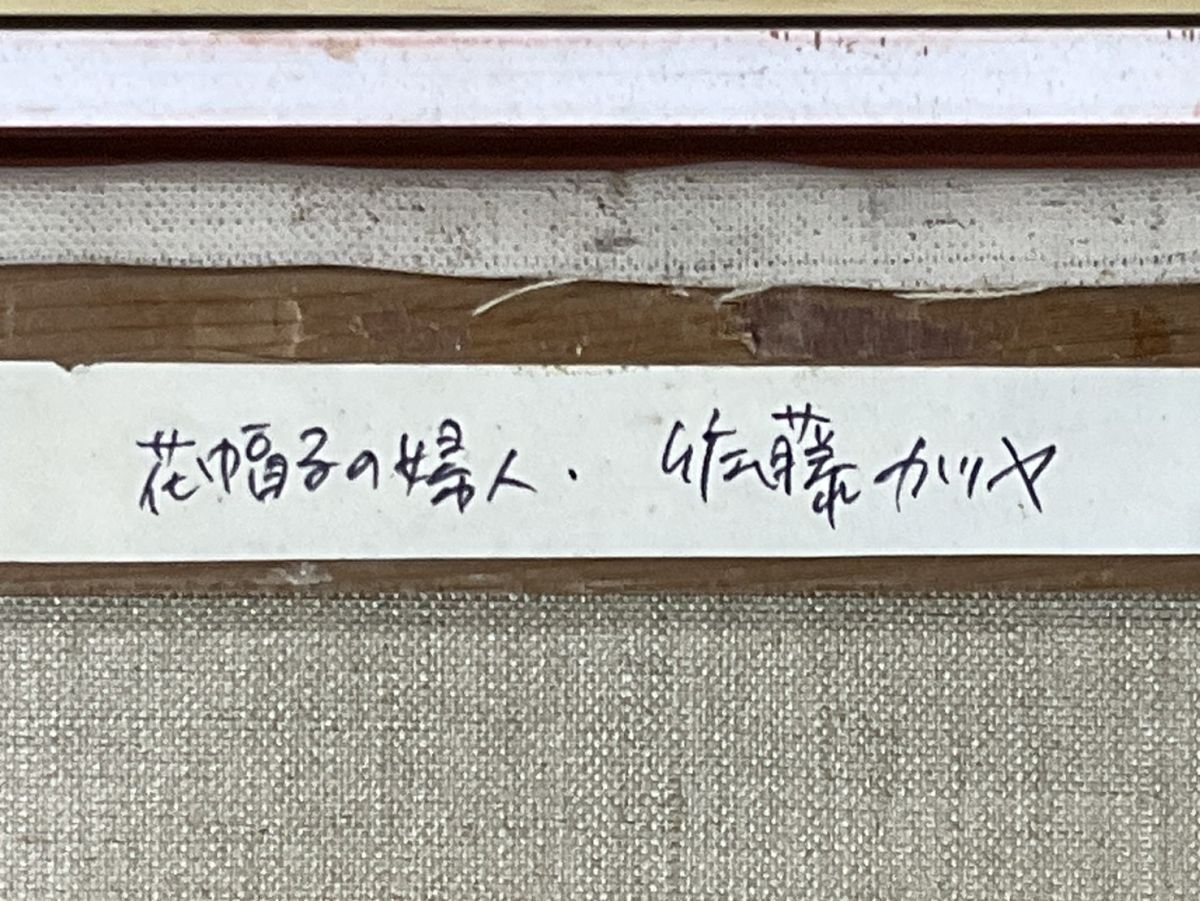 花帽子の婦人. 佐藤カツヤ